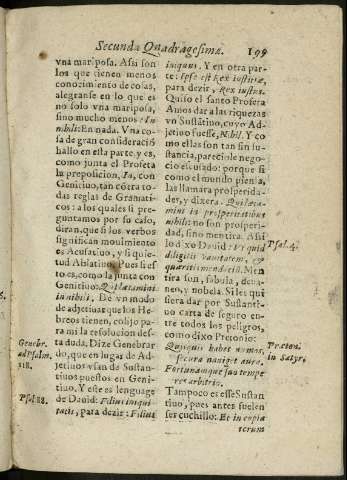 Secunda Quadragesimæ. 199
vna mariposa. Assi son
los que tienen menos
conocimiento de cosas,
alegranse en lo que es
no solo vna mariposa,
sino mucho menos: In
nihili: En nada. Vna co-
sa de gran consideració
hallo en esta parte, y es,
como junta el Profeta
la preposicion, In, con
Genitiuo, tan cótra to-
das reglas de Gramati-
cos: a los quales si pre-
guntamos por su caso,
diran, que si los verbos
significan mouimiento
es Acusatiuo, y si quie-
tud Ablatiuo. Pues si es-
to es, como la junta con
Genitiuo: Qui lætamini
in nihili. De vn modo
de adjetiuar que los He
breos tienen, colijo pa-
ra mi la resolucion des-
ta duda. Dize Genebrar
do, que en lugar de Ad-
jetiuos vsan de Sustan-
tiuos puestos en Geni-
tiuo. Y este es lenguage
de Dauid: Filius iniqui
tatis, para dezir: Filius
Genebr.
ad Psalm.
118.
Psal. 88.
iniquus. Y en otra par-
te: Ipse est Rex iustitiæ,
para dezir, Rex iustus.
Quiso el santo Profeta
Amos dar a las riquezas
vn Sustátiuo, cuyo Ad-
jetiuo fuesse, Nihil. Y co
mo ellas son tan sin su-
stancia, pareciole nego-
cio escusado: porque si
como el mundo piensa,
las llamara prosperida-
des, y dixera. Qui læta-
mini in prosperitatibus
nihili: no son prosperi-
dad, sino mentira. Assi
lo dixo Dauid: Vt quid
diligitis vanitatem, &
quæritis mendaciū. Men
tira son, fabula, deua-
neo, y nobela. Si les qui
siera dar por Sustanti-
uo carta de seguro en-
tre todos los peligros,
como dixo Petronio:
Quisquis habet nūmos,
secura nauiget aura,
Fortunamque suo tempe
ret arbitrio.
Tampoco es esse Sustan
tiuo, pues antes suelen
ser cuchillo: Et in copia
rerum
Psal. 4.
Petron.
in Satyr.